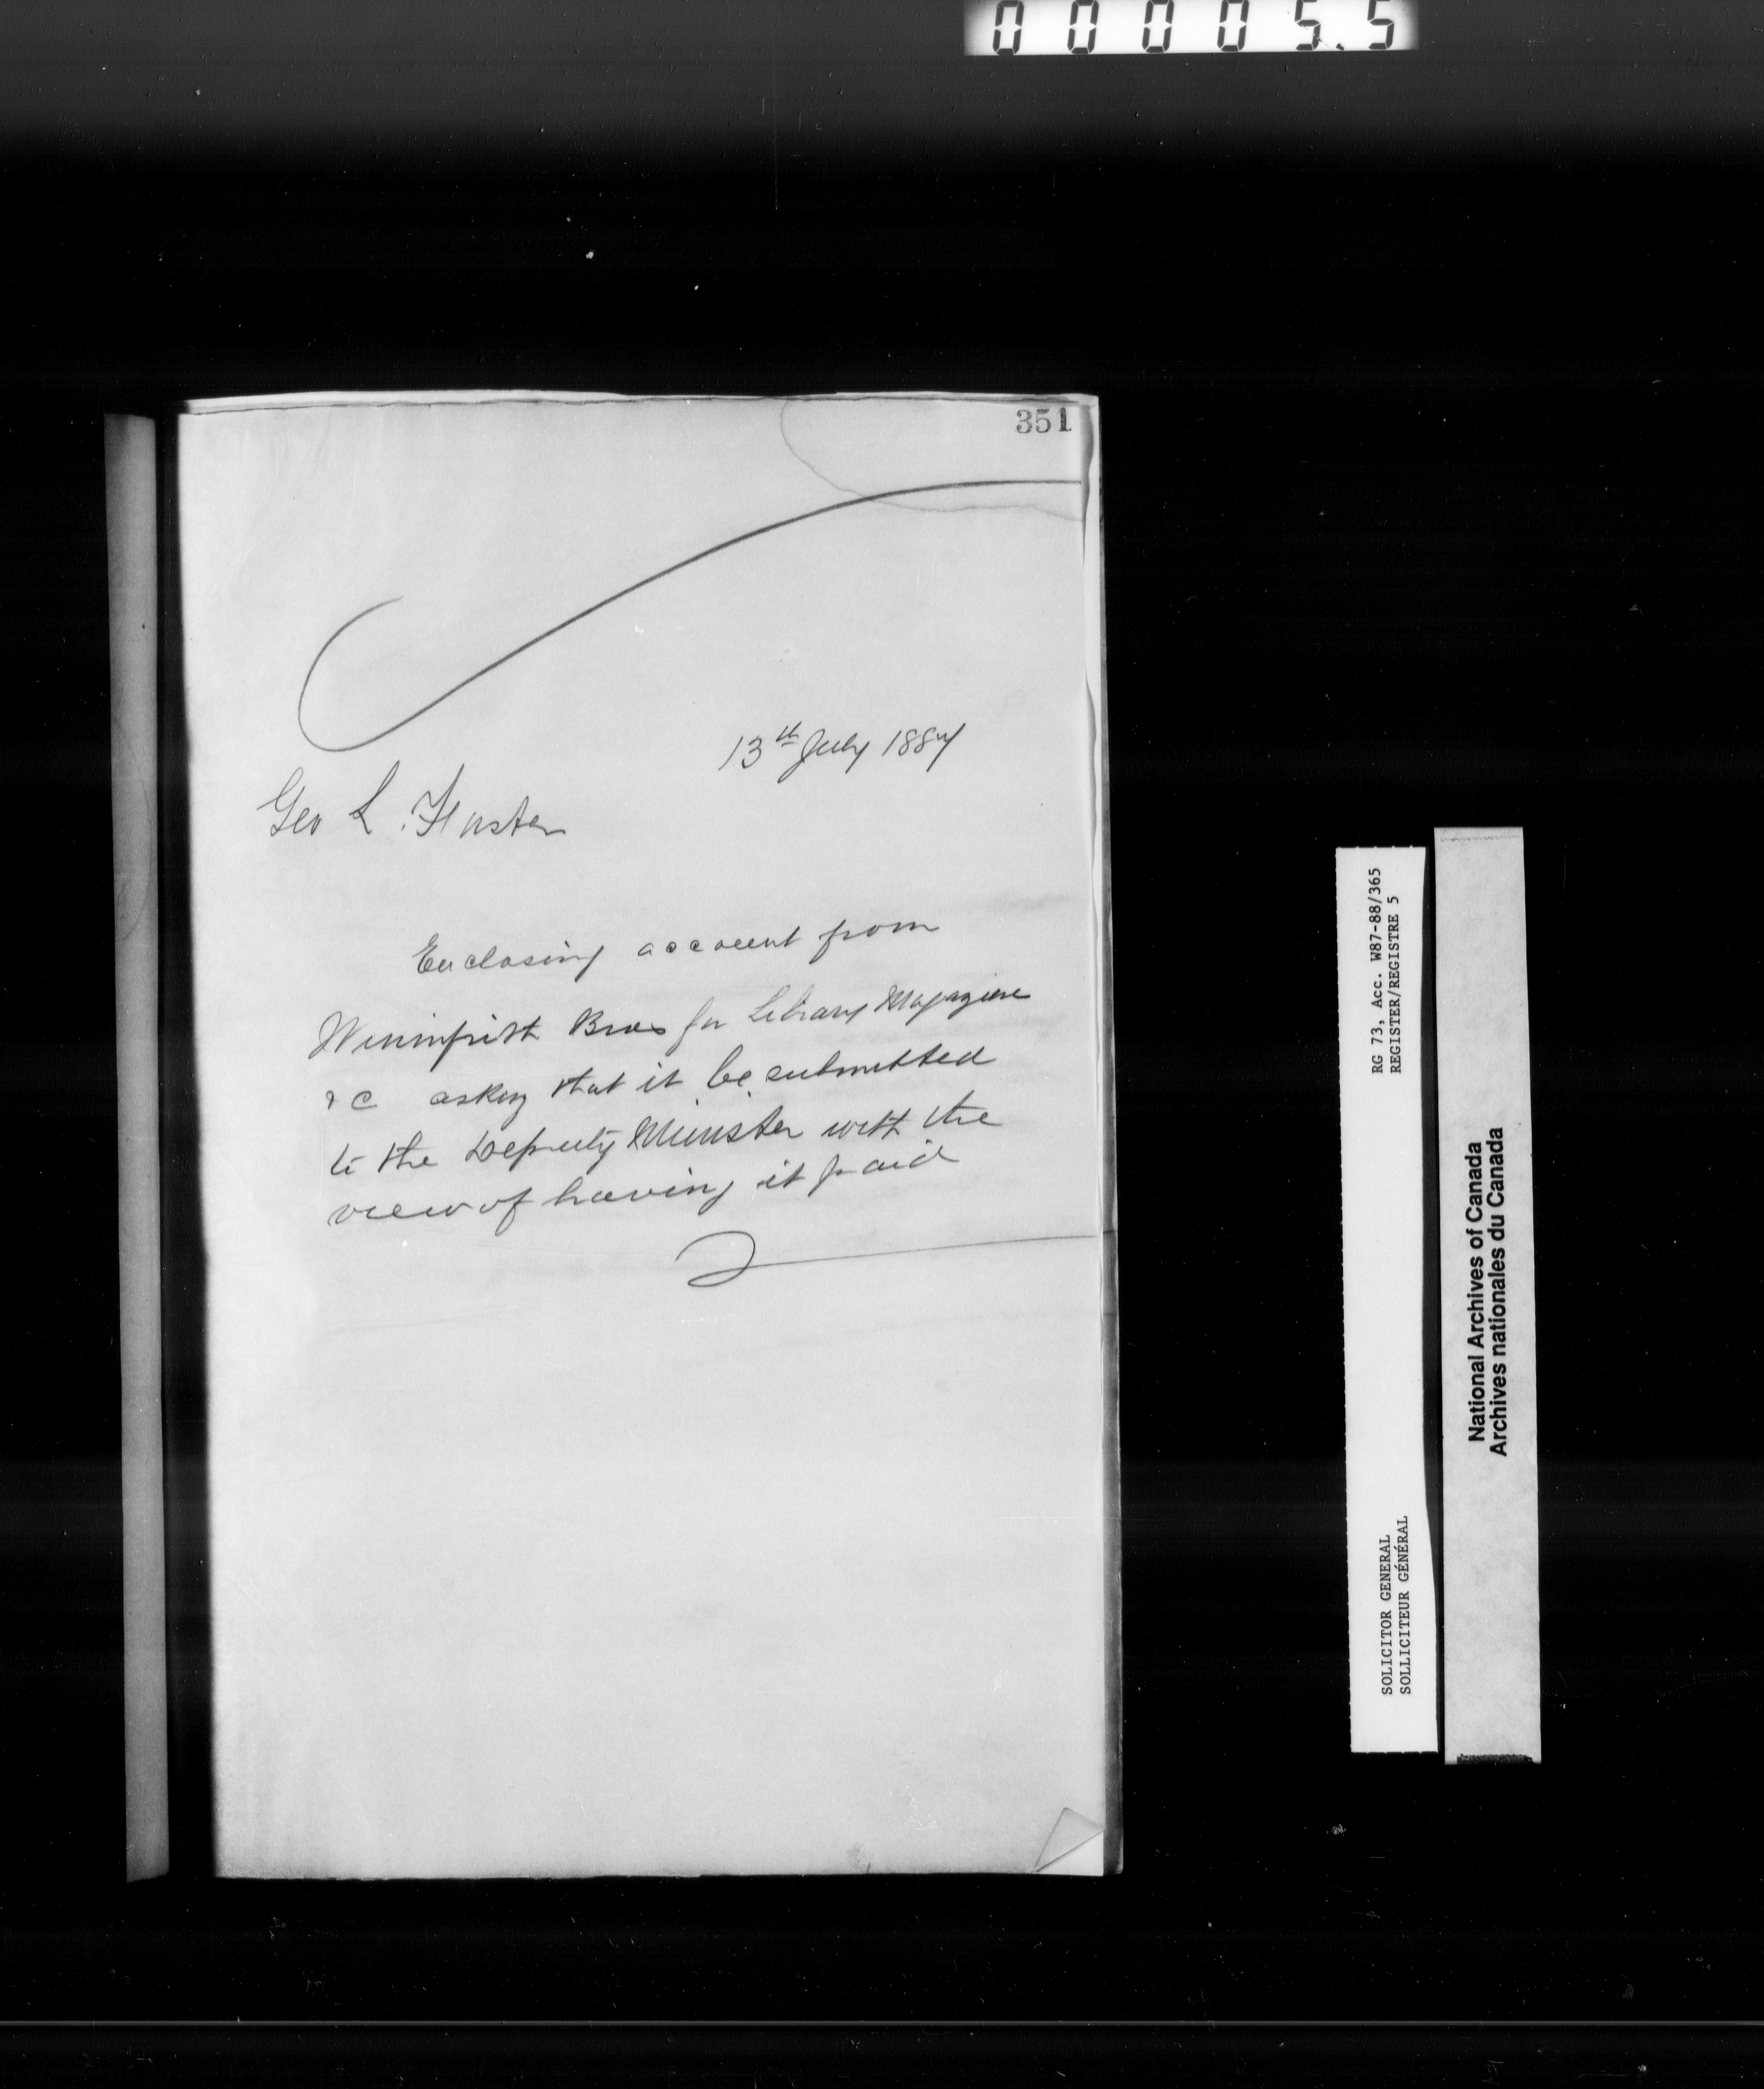 00005.5
351
13th July 188
Geo L. Foster
Enclosing account from
Bros for Library Magazine
&c asking that it be submitted
to the Deputy Minister with the
view of having it paid
RG 73, Acc. W87-88/365
REGISTER/REGISTRE 5
SOLICITOR GENERAL
SOLLICITEUR GÉNÉRAL
National Archives of Canada
Archives nationales du Canada